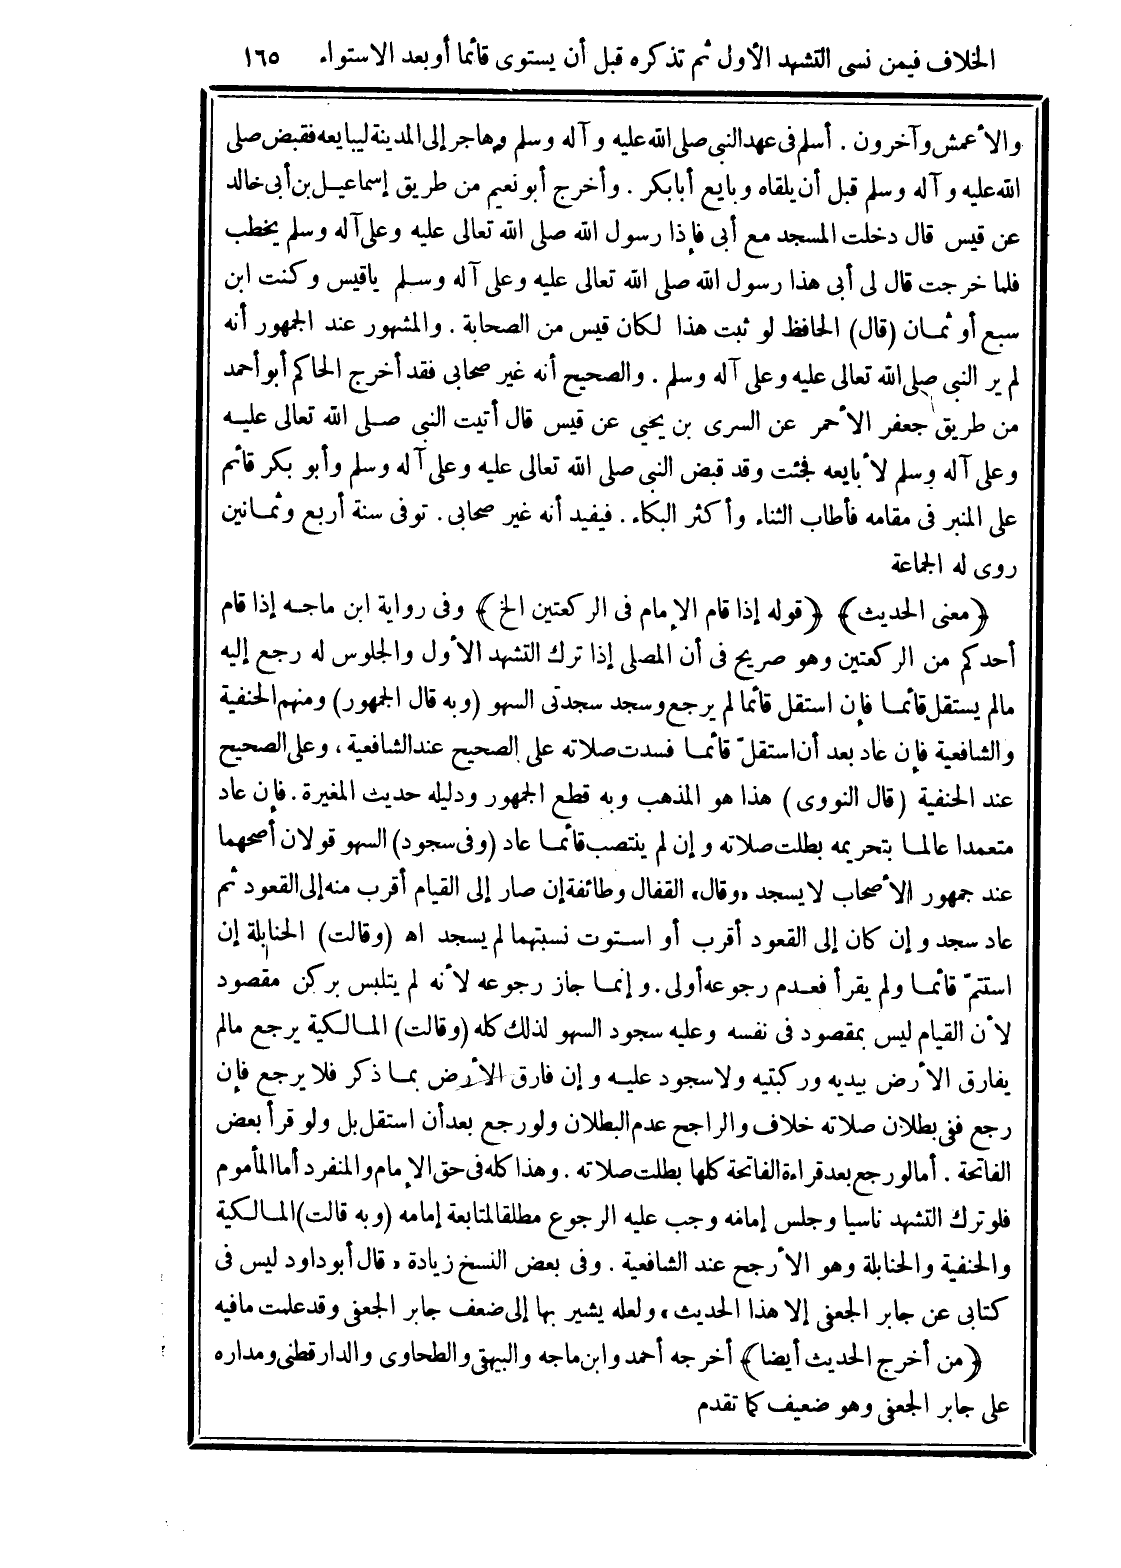 الخلاف فيمن نسى التشهد الأول ثم تذكره قبل أن يستوى قائما أو بعد الاستواء ١٦٥
والأعمش وآخرون . أسلم فى عهد النبى صلى الله عليه وآله وسلم وهاجر إلى المدينة ليبايعه فقبض صلى
الله عليه وآله وسلم قبل أن يلقاه وبايع أبابكر . وأخرج أبو نعيم من طريق إسماعيل بن أبى خالد
عن قيس قال دخلت المسجد مع أبى فإذا رسول الله صلى الله تعالى عليه وعلى آله وسلم يخطب
فلما خرجت قال لى أبى هذا رسول الله صلى الله تعالى عليه وعلى آله وسلم ياقيس وكنت ابن
سبع أو ثمان (قال) الحافظ لو ثبت هذا لكان قيس من الصحابة . والمشهور عند الجمهور أنه
لم ير النبى صلى الله تعالى عليه وعلى آله وسلم . والصحيح أنه غير صحابى فقد أخرج الحاكم أبو أحمد
من طريق جعفر الأحمر عن السرى بن يحيى عن قيس قال أتيت النبى صلى الله تعالى عليه
وعلى آله وسلم لأبايعه فجئت وقد قبض النبى صلى الله تعالى عليه وعلى آله وسلم وأبو بكر قائم
على المنبر فى مقامه فأطاب الثناء وأكثر البكاء . فيفيد أنه غير صحابى . توفى سنة أربع وثمانين
روى له الجماعة
﴿معنى الحديث﴾ ﴿قوله إذا قام الإمام فى الركعتين الخ﴾ وفى رواية ابن ماجه إذا قام
أحدكم من الركعتين وهو صريح فى أن المصلى إذا ترك التشهد الأول والجلوس له رجع إليه
مالم يستقل قائما فإن استقل قائما لم يرجع وسجد سجدتى السهو (وبه قال الجمهور) ومنهم الحنفية
والشافعية فإن عاد بعد أن استقلّ قائما فسدت صلاته على الصحيح عند الشافعية ، وعلى الصحيح
عند الحنفية (قال النووى) هذا هو المذهب وبه قطع الجمهور ودليله حديث المغيرة . فإن عاد
متعمدا عالما بتحريمه بطلت صلاته وإن لم ينتصب قائما عاد (وفى سجود) السهو قولان أصحهما
عند جمهور الأصحاب لايسجد «وقال» القفال وطائفة إن صار إلى القيام أقرب منه إلى القعود ثم
عاد سجد وإن كان إلى القعود أقرب أو استوت نسبتهما لم يسجد اه (وقالت) الحنابلة إن
استتمّ قائما ولم يقرأ فعدم رجوعه أولى . وإنما جاز رجوعه لأنه لم يتلبس بركن مقصود
لأن القيام ليس بمقصود فى نفسه وعليه سجود السهو لذلك كله (وقالت) المالكية يرجع مالم
يفارق الأرض بيديه وركبتيه ولاسجود عليه وإن فارق الأرض بما ذكر فلا يرجع فإن
رجع ففى بطلان صلاته خلاف والراجح عدم البطلان ولو رجع بعد أن استقل بل ولو قرأ بعض
الفاتحة . أمالو رجع بعد قراءة الفاتحة كلها بطلت صلاته . وهذا كله فى حق الإمام والمنفرد أما المأموم
فلو ترك التشهد ناسيا وجلس إمامه وجب عليه الرجوع مطلقا لمتابعة إمامه (وبه قالت) المالكية
والحنفية والحنابلة وهو الأرجح عند الشافعية . وفى بعض النسخ زيادة « قال أبو داود ليس فى
كتابى عن جابر الجعفى إلا هذا الحديث » ولعله يشير بها إلى ضعف جابر الجعفى وقد علمت مافيه
﴿من أخرج الحديث أيضا﴾ أخرجه أحمد وابن ماجه والبيهقى والطحاوى والدارقطنى ومداره
على جابر الجعفى وهو ضعيف كما تقدم